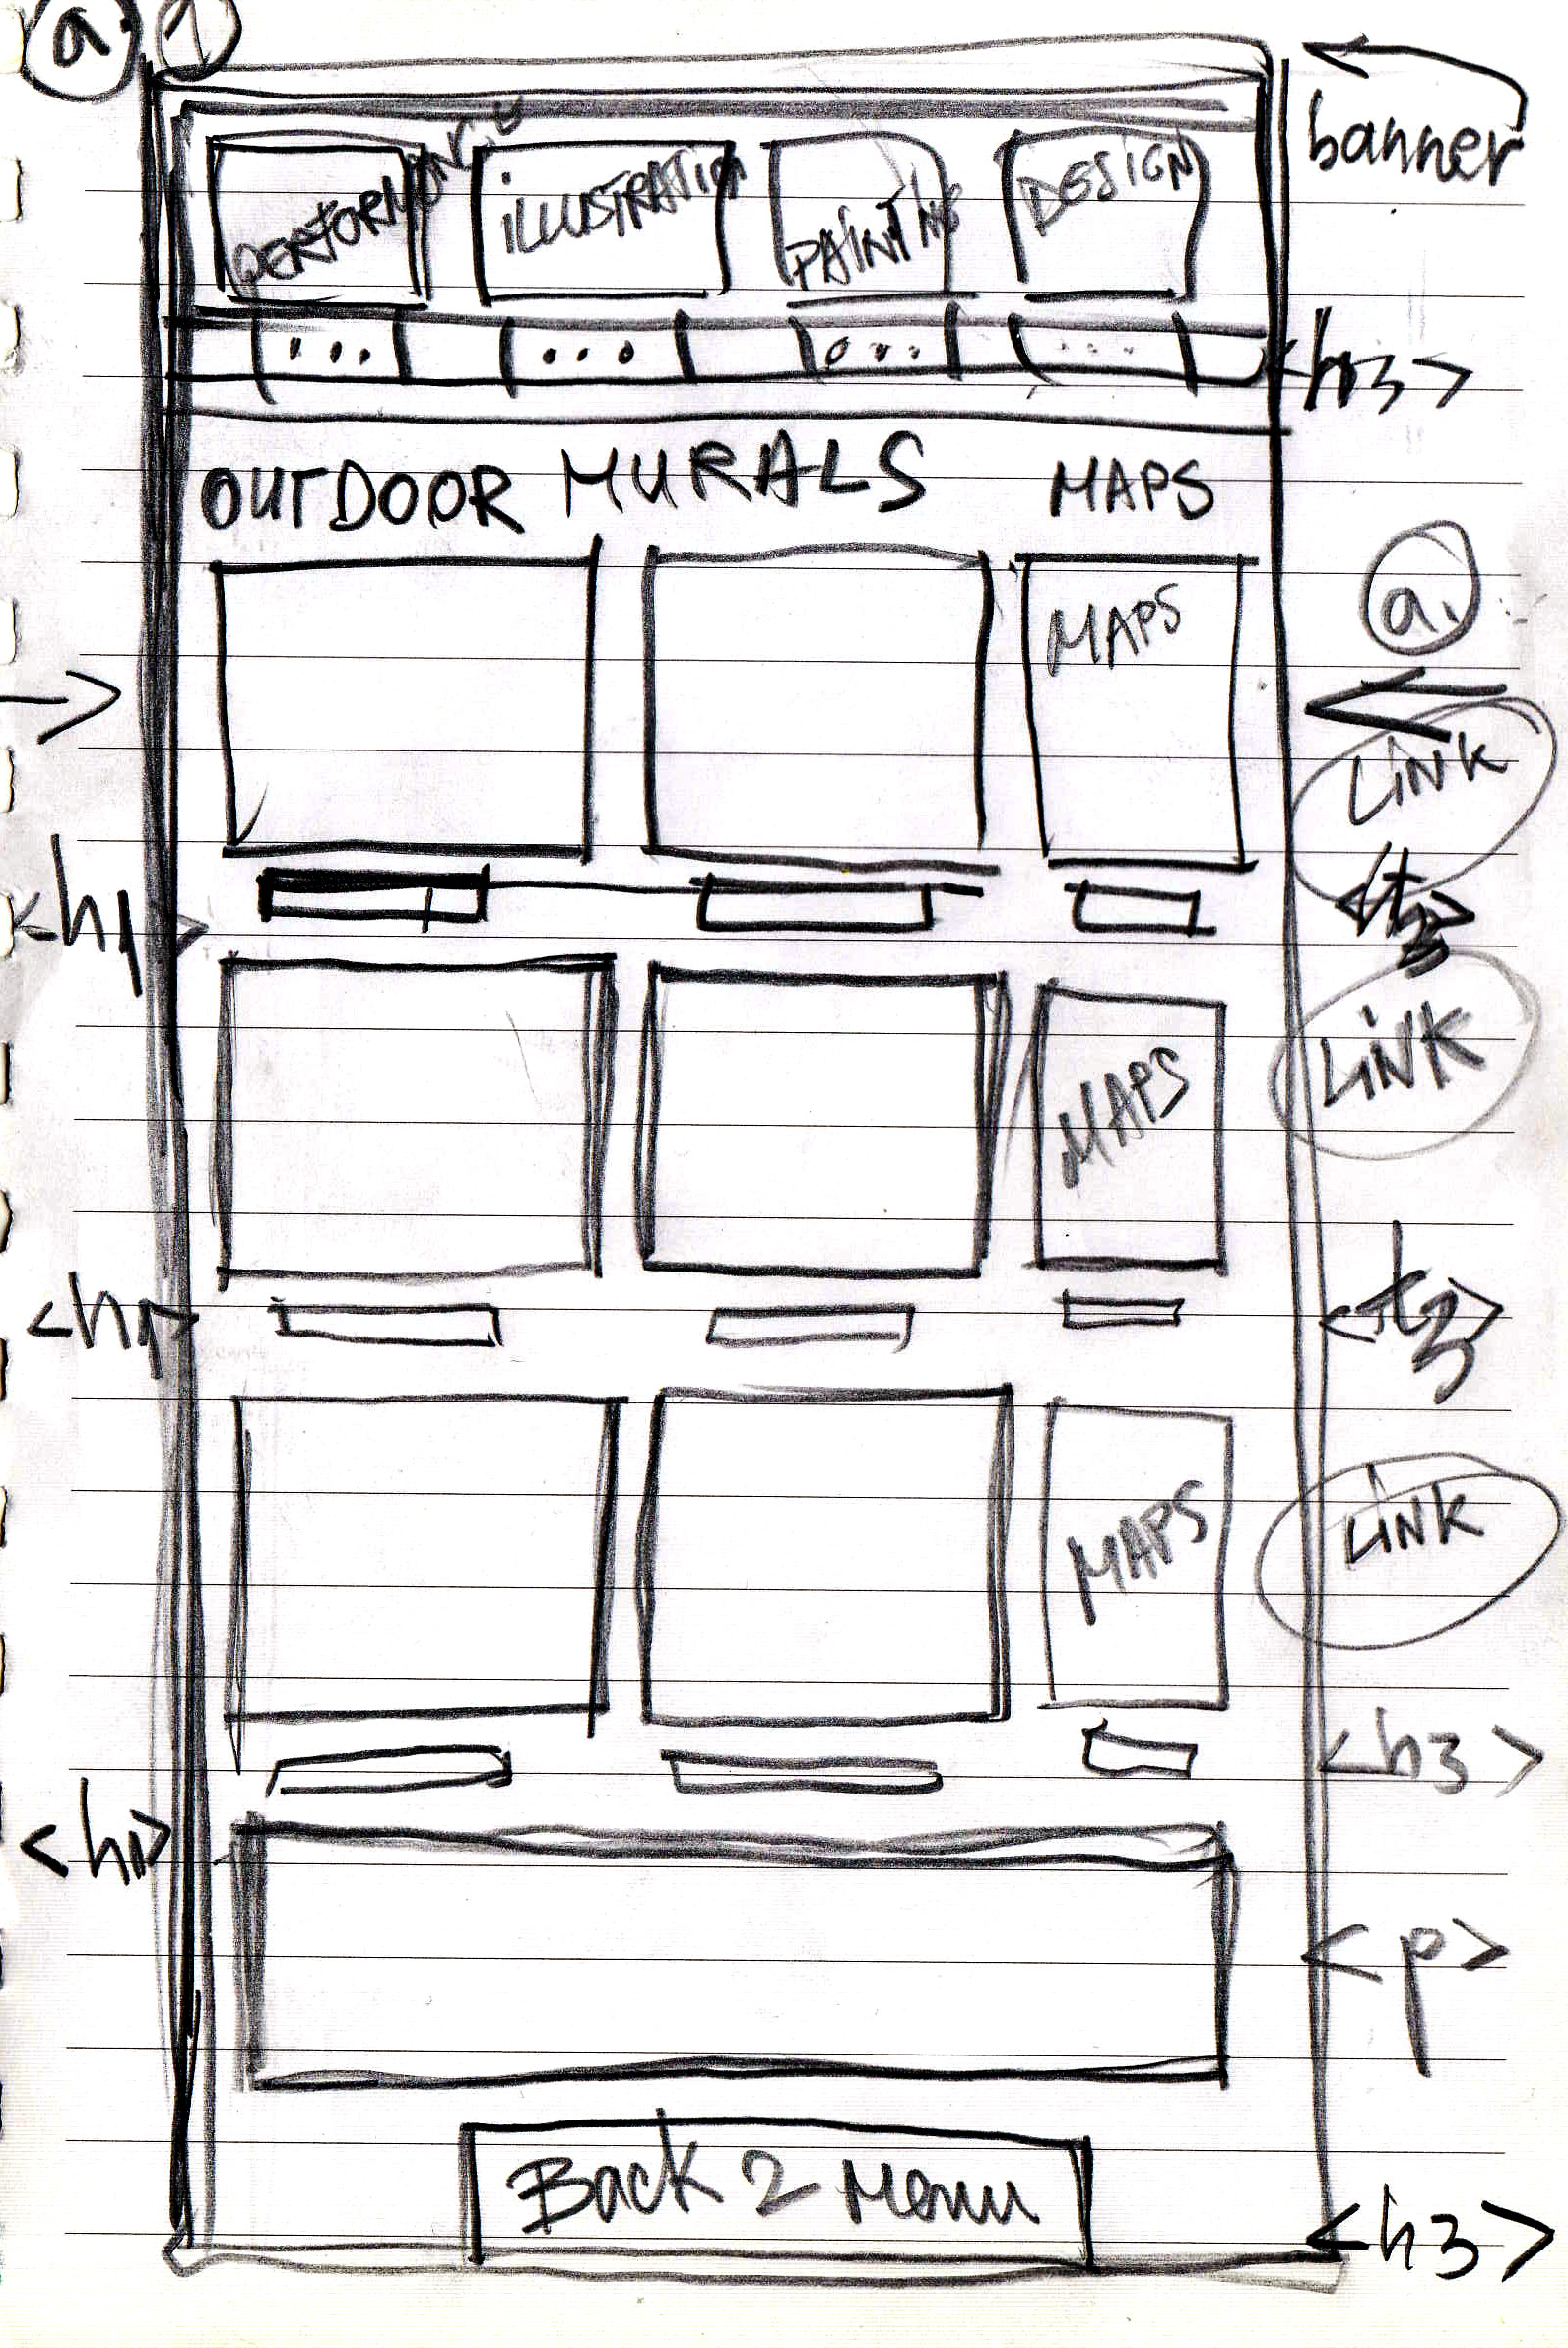 a. 1
banner
PERFORMANCE ILLUSTRATION PAINTING DESIGN
... ... ... ... <h3>
OUTDOOR MURALS MAPS
MAPS
a.
LINK
<h1>
MAPS
LINK
<h1>
MAPS
LINK
<h3>
<h1>
<p>
Back 2 Menu
<h3>